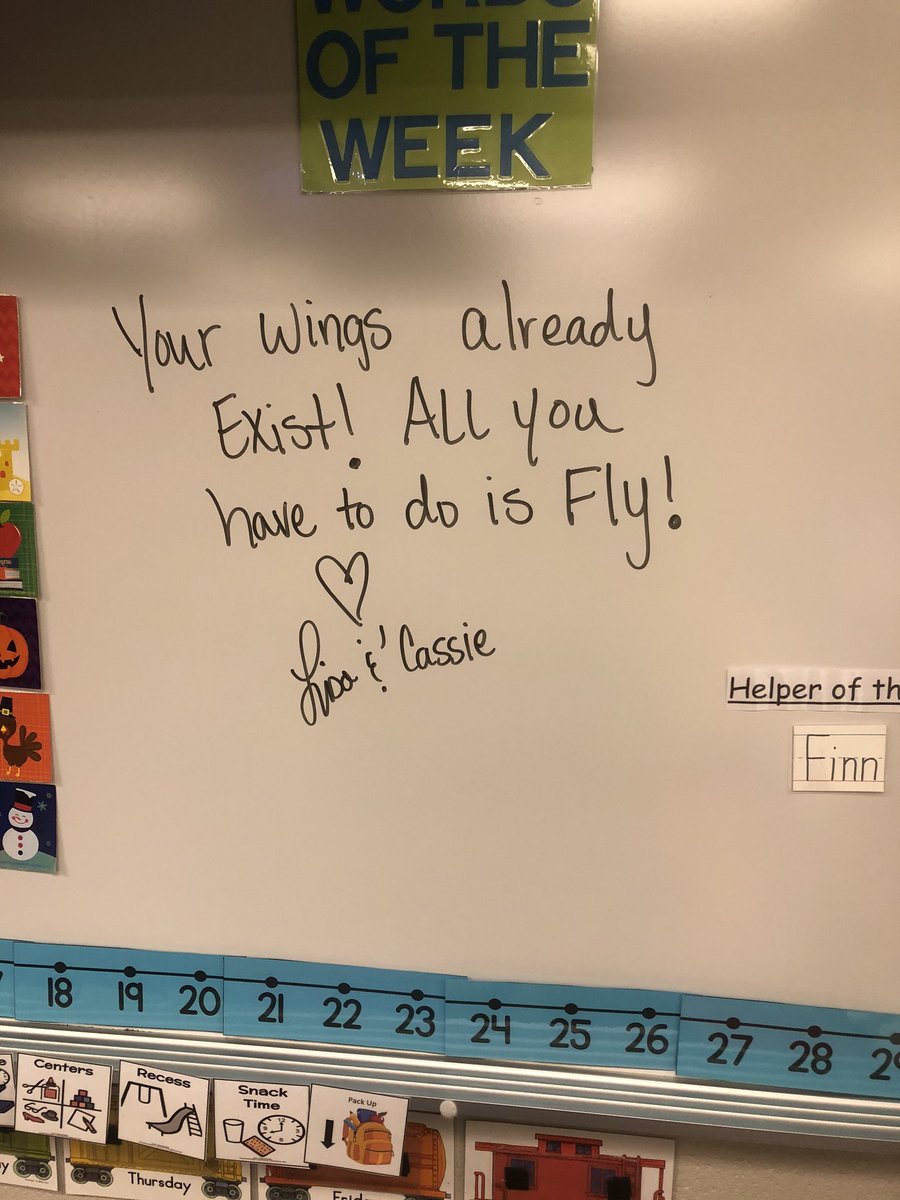 WORDS
OF THE
WEEK
Your wings already
Exist! All you
have to do is Fly!
Lisa & Cassie
Helper of th
Finn
18 19 20 21 22 23 24 25 26 27 28 29
Centers
Recess
Snack
Time
Pack Up
Thursday
Frida